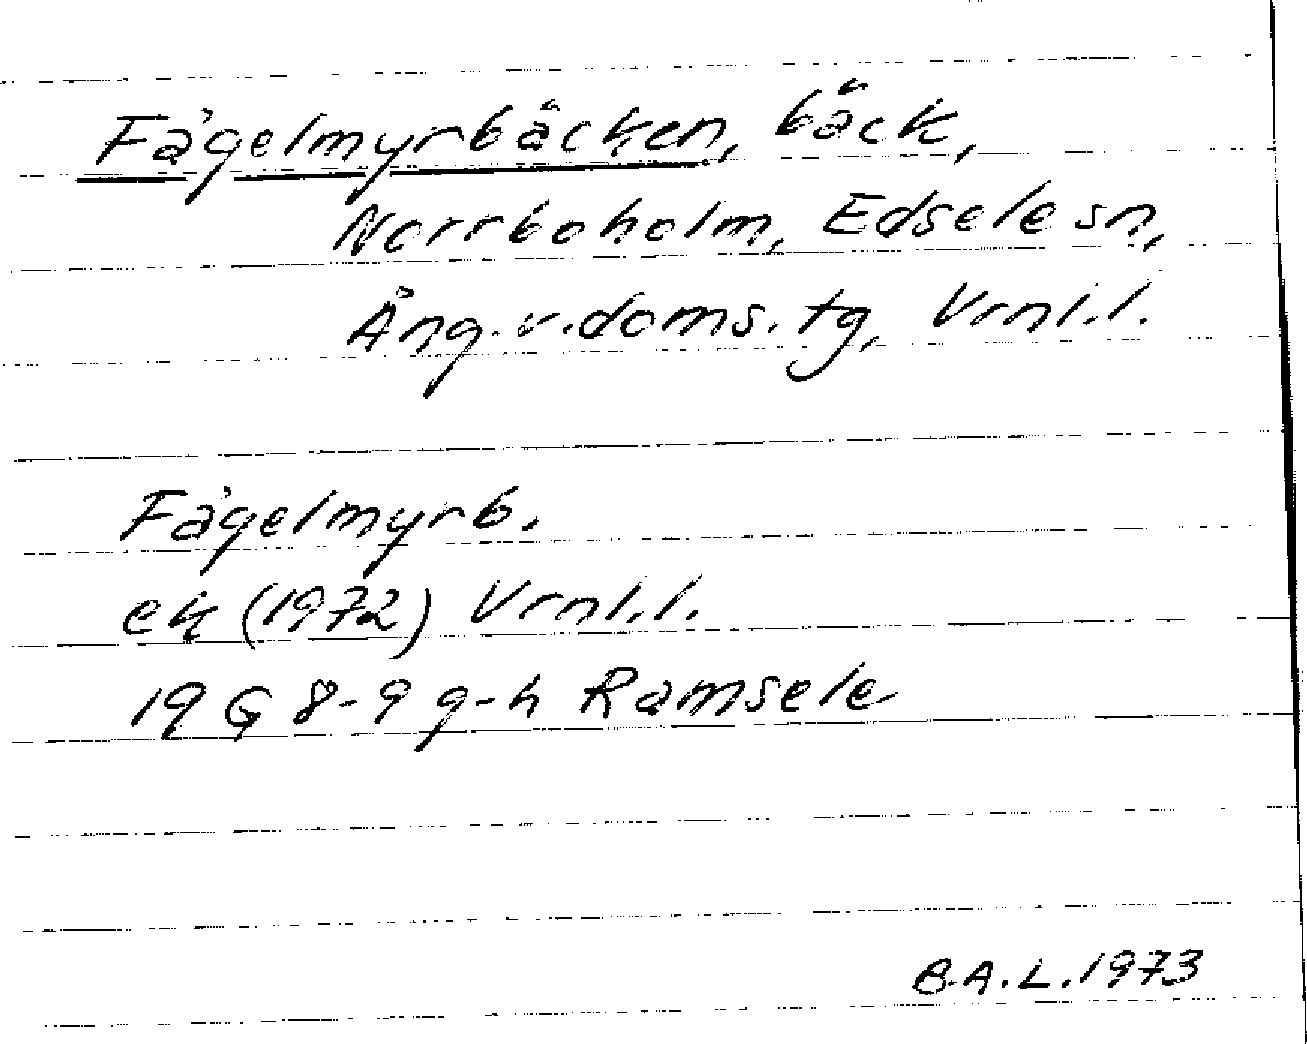 Fågelmyrbäcken, bäck,
Norrboholm, Edsele sn,
Ång. v. doms. tg, Vrnl.l.
Fågelmyrb.
ek (1972) Vrnl.l.
19 G 8-9 g-h Ramsele
B.A.L. 1973